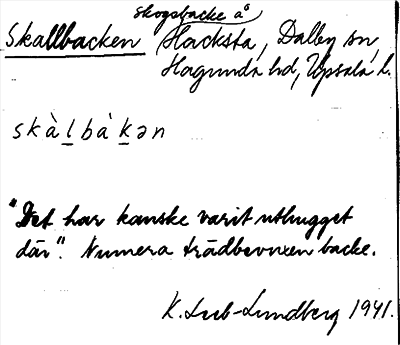 skogsbacke å
Skallbacken Hacksta, Dalby sn,
Hagunda hd, Upsala l.
skàl̲bàk̲ən
"Det har kanske varit uthugget
där". Numera trädbevuxen backe.
K. Lub-Lundberg 1941.